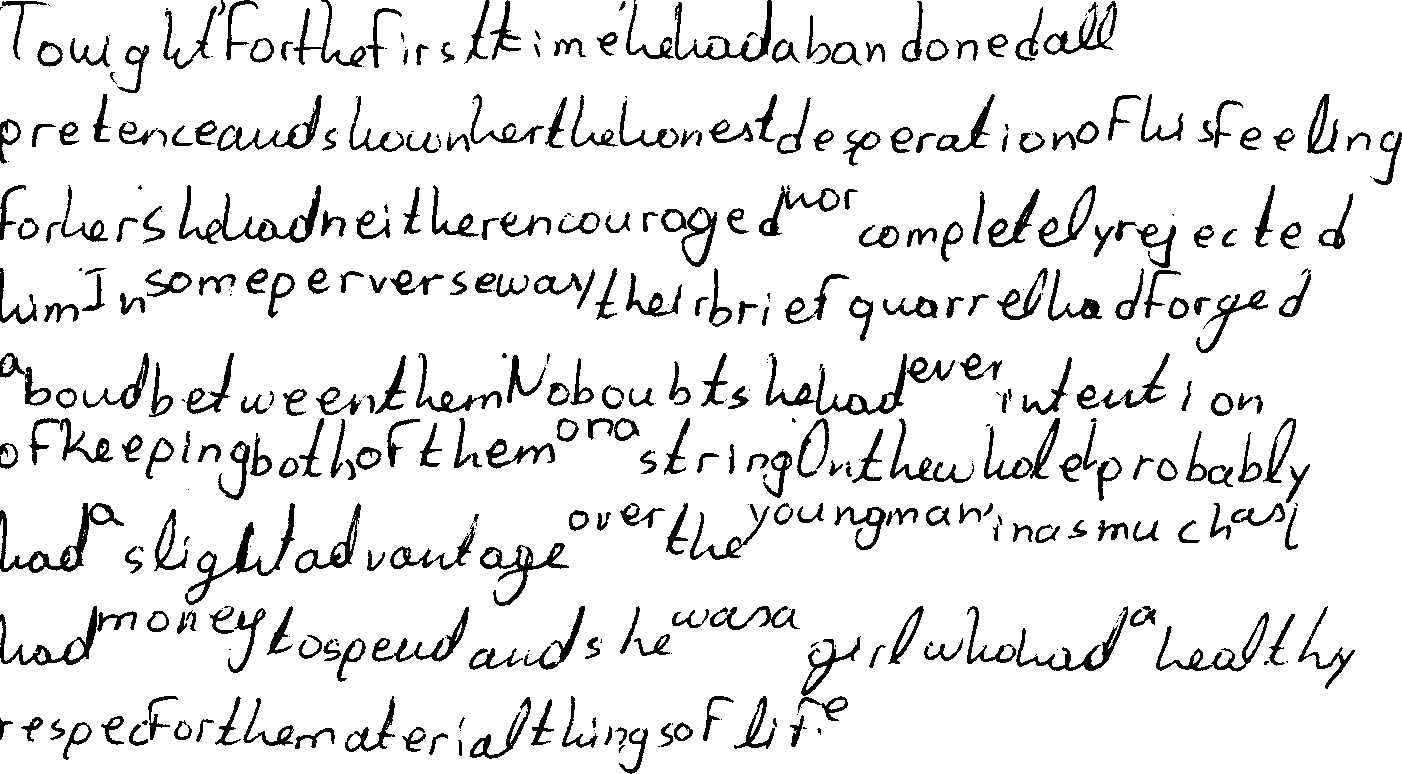 Tonight for the first time he had abandoned all
pretence and shown her the honest desperation of his feeling
for her She had neither encouraged nor completely rejected
him In some perverse way their brief quarrel had forged
a bond between them No doubt she had every intention
of keeping both of them on a string On the whole I probably
had a slight advantage over the young man, inasmuch as I
had money to spend and she was a girl who had a healthy
respect for the material things of life.